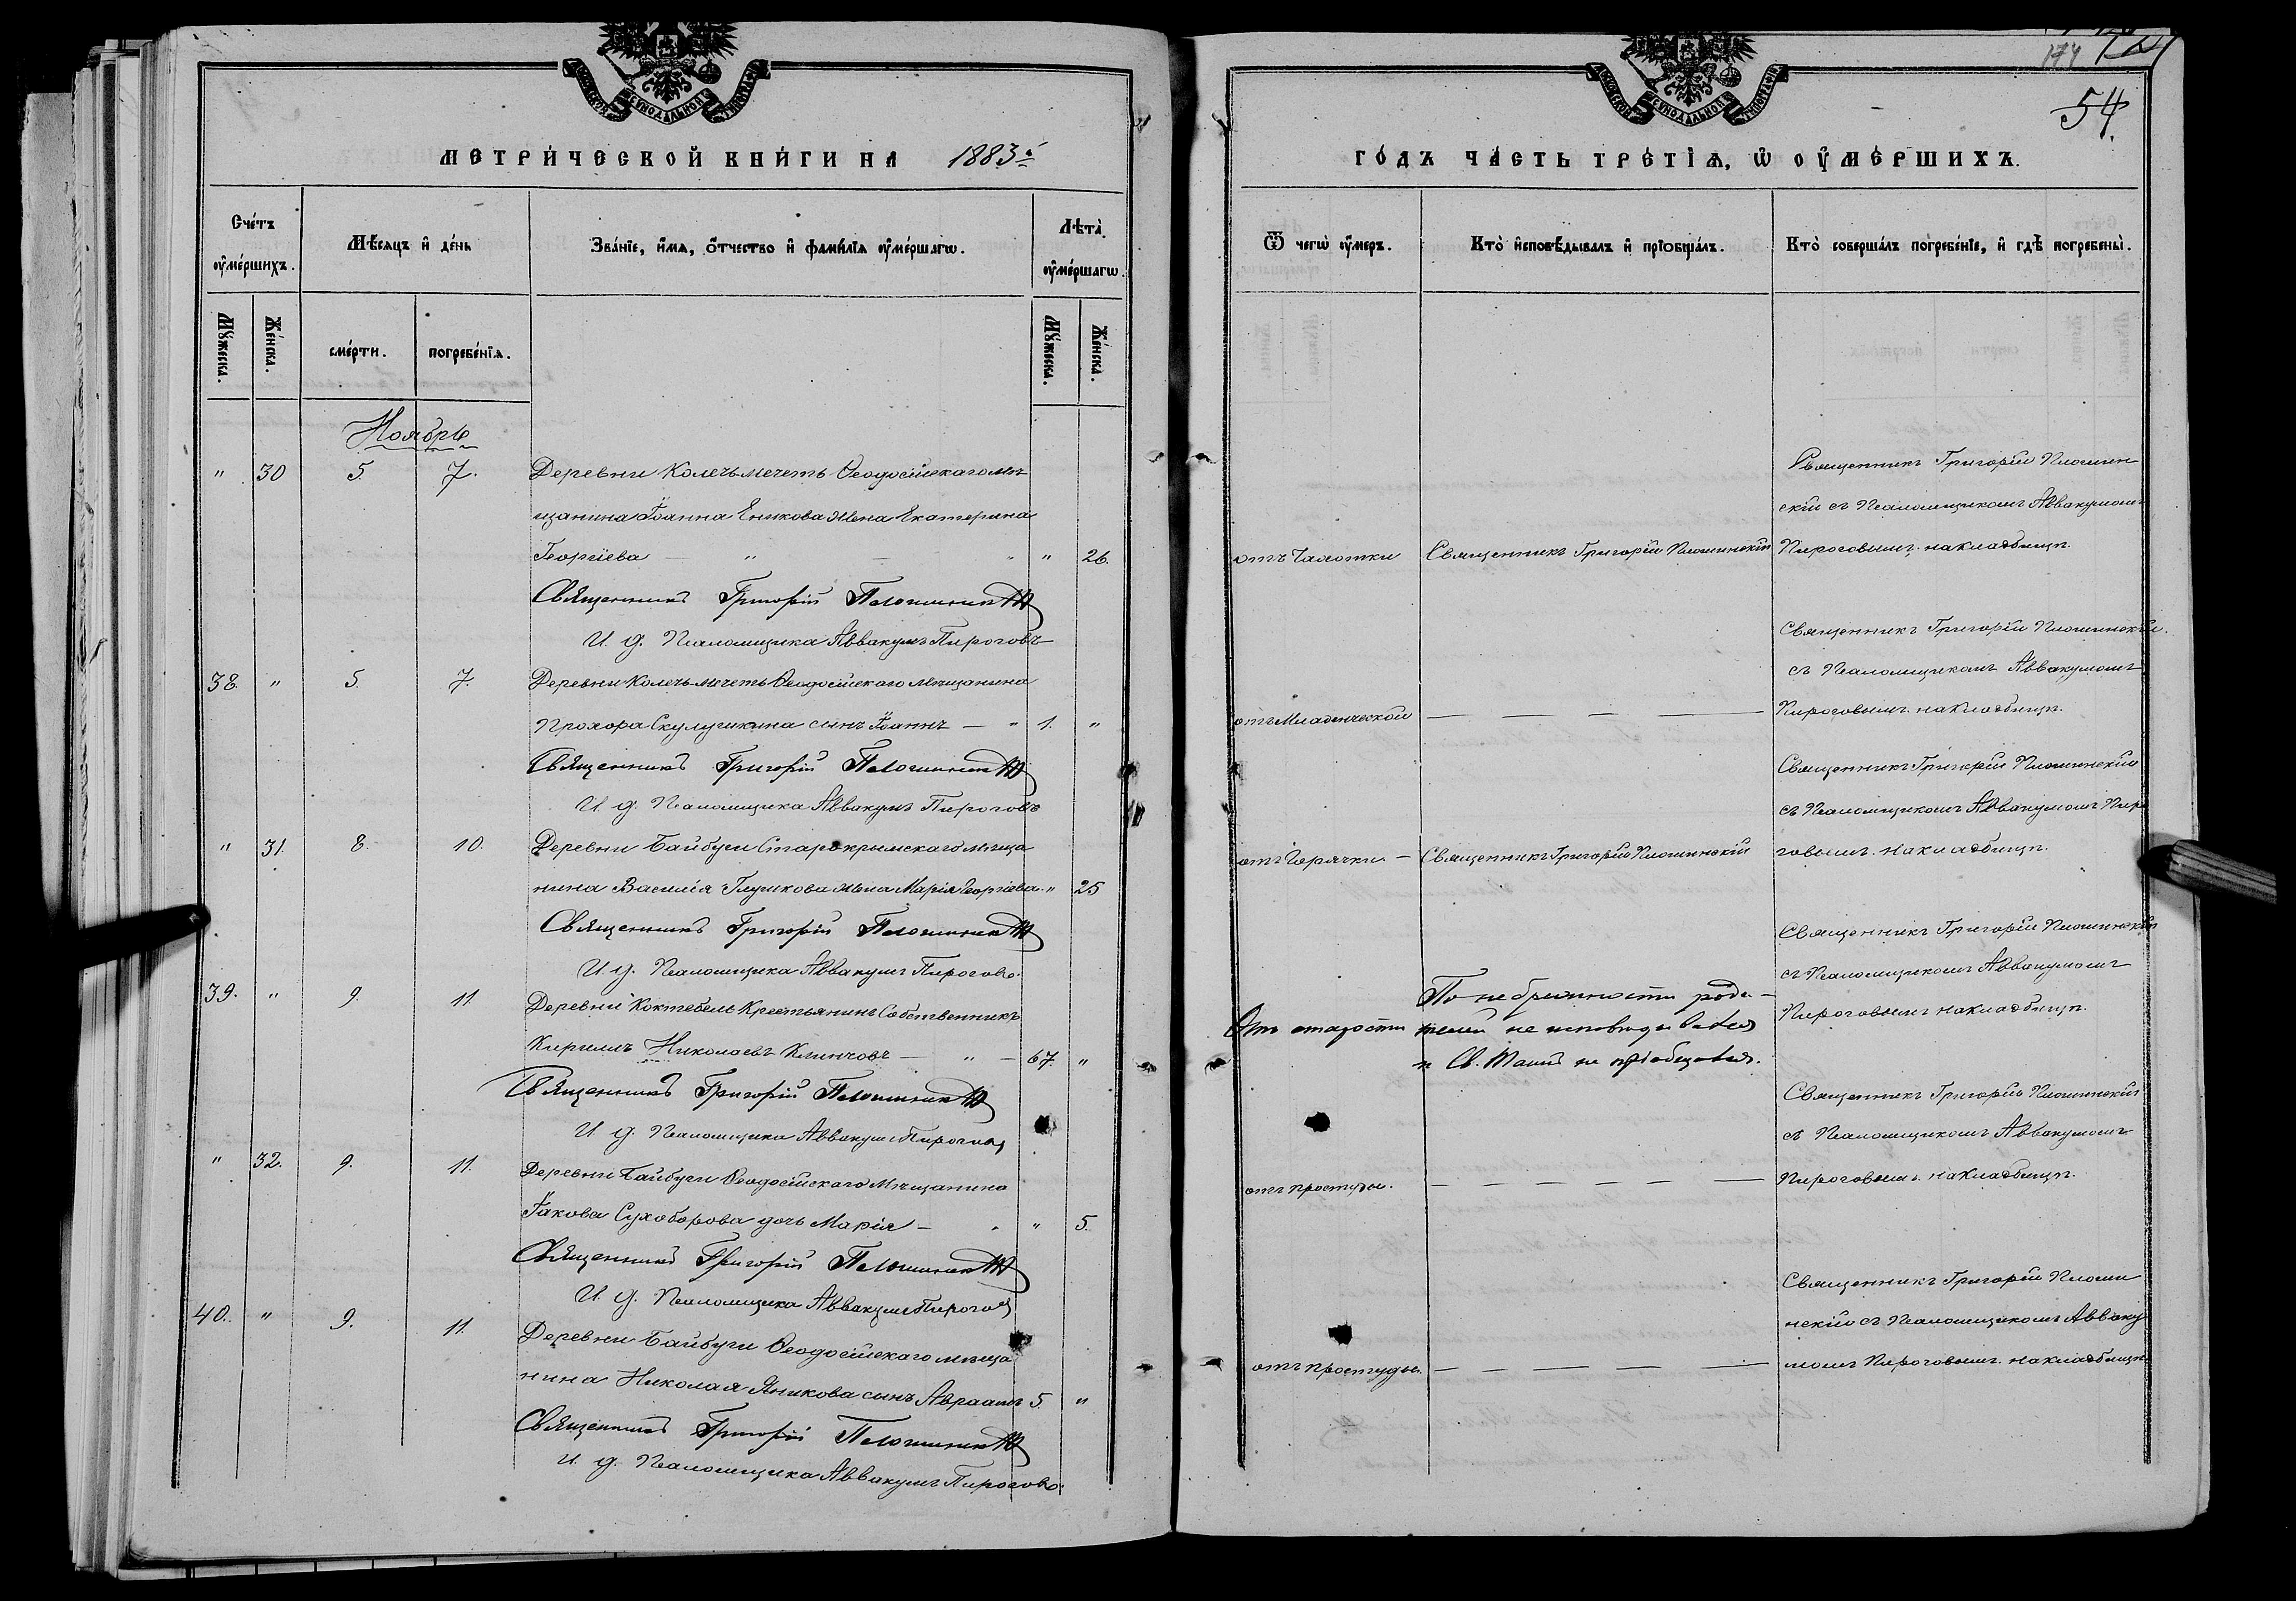 МЕТРИЧЕСКОЙ КНИГИ НА 1883й
Счетъ умершихъ.
Мѣсяцъ и день
Званіе, имя, отчество и фамилія умершаго.
Лѣта умершаго.
Мужеска.
Женска.
смерти.
погребенія.
Мужеска.
Женска.
Ноябрь
" 30 5. 7. Деревни Колечь-мечеть Ѳеодосійскаго мѣ
щанина Іоанна Еникова жена Екатерина
Георгіева — " — " " 26.
Священникъ Григорій Плошинскій
И. д. Псаломщика Аввакумъ Пироговъ
38. " 5. 7. Деревни Колечь-мечеть Ѳеодосійскаго мѣщанина
Прохора Скулушкина сынъ Іоаннъ — " 1. "
Священникъ Григорій Плошинскій
И. д. Псаломщика Аввакумъ Пироговъ
" 31. 8. 10. Деревни Байбуги Старокрымскаго мѣща
нина Василія Глушкова жена Марія Георгіева. " 25
Священникъ Григорій Плошинскій
И. д. Псаломщика Аввакумъ Пироговъ.
39. " 9. 11. Деревни Коктебель Крестьянинъ Собственникъ
Кириллъ Николаевъ Клинчовъ — " — 67. "
Священникъ Григорій Плошинскій
И. д. Псаломщика Аввакумъ Пироговъ
" 32. 9. 11. Деревни Байбуги Ѳеодосійскаго Мѣщанина
Іакова Сухоборова дочь Марія — " " 5.
Священникъ Григорій Плошинскій
И. д. Псаломщика Аввакумъ Пироговъ
40. " 9. 11. Деревни Байбуги Ѳеодосійскаго мѣща
нина Николая Яникова сынъ Авраамъ 5. "
Священникъ Григорій Плошинскій
И. д. Псаломщика Аввакумъ Пироговъ.
174
54.
ГОДЪ ЧАСТЬ ТРЕТІЯ, Ѡ УМЕРШИХЪ.
Ѿ чегѡ умеръ.
Кто исповѣдывалъ и пріобщалъ.
Кто совершалъ погребеніе, и гдѣ погребены.
Священникъ Григорій Плошин
скій съ Псаломщикомъ Аввакумомъ
отъ Чахотки Священникъ Григорій Плошинскій Пироговымъ. на кладбищѣ.
Священникъ Григорій Плошинскій.
съ Псаломщикомъ Аввакумомъ
отъ Младенческой — — — — Пироговымъ. на кладбищѣ.
Священникъ Григорій Плошинскій
съ Псаломщикомъ Аввакумомъ Пиро
отъ Горячки — Священникъ Григорій Плошинскій говымъ. на кладбищѣ.
Священникъ Григорій Плошинскій
съ Псаломщикомъ Аввакумомъ
Отъ старости По небрежности роди-
телей не исповѣдывался
и Св. Таинъ не пріобщался.
Пироговымъ на кладбищѣ.
Священникъ Григорій Плошинскій
съ Псаломщикомъ Аввакумомъ
отъ простуды. — — — — — — Пироговымъ. на кладбищѣ.
Священникъ Григорій Плоши
нскій съ Псаломщикомъ Авваку
отъ простуды. — — — — — — момъ Пироговымъ. на кладбищѣ.